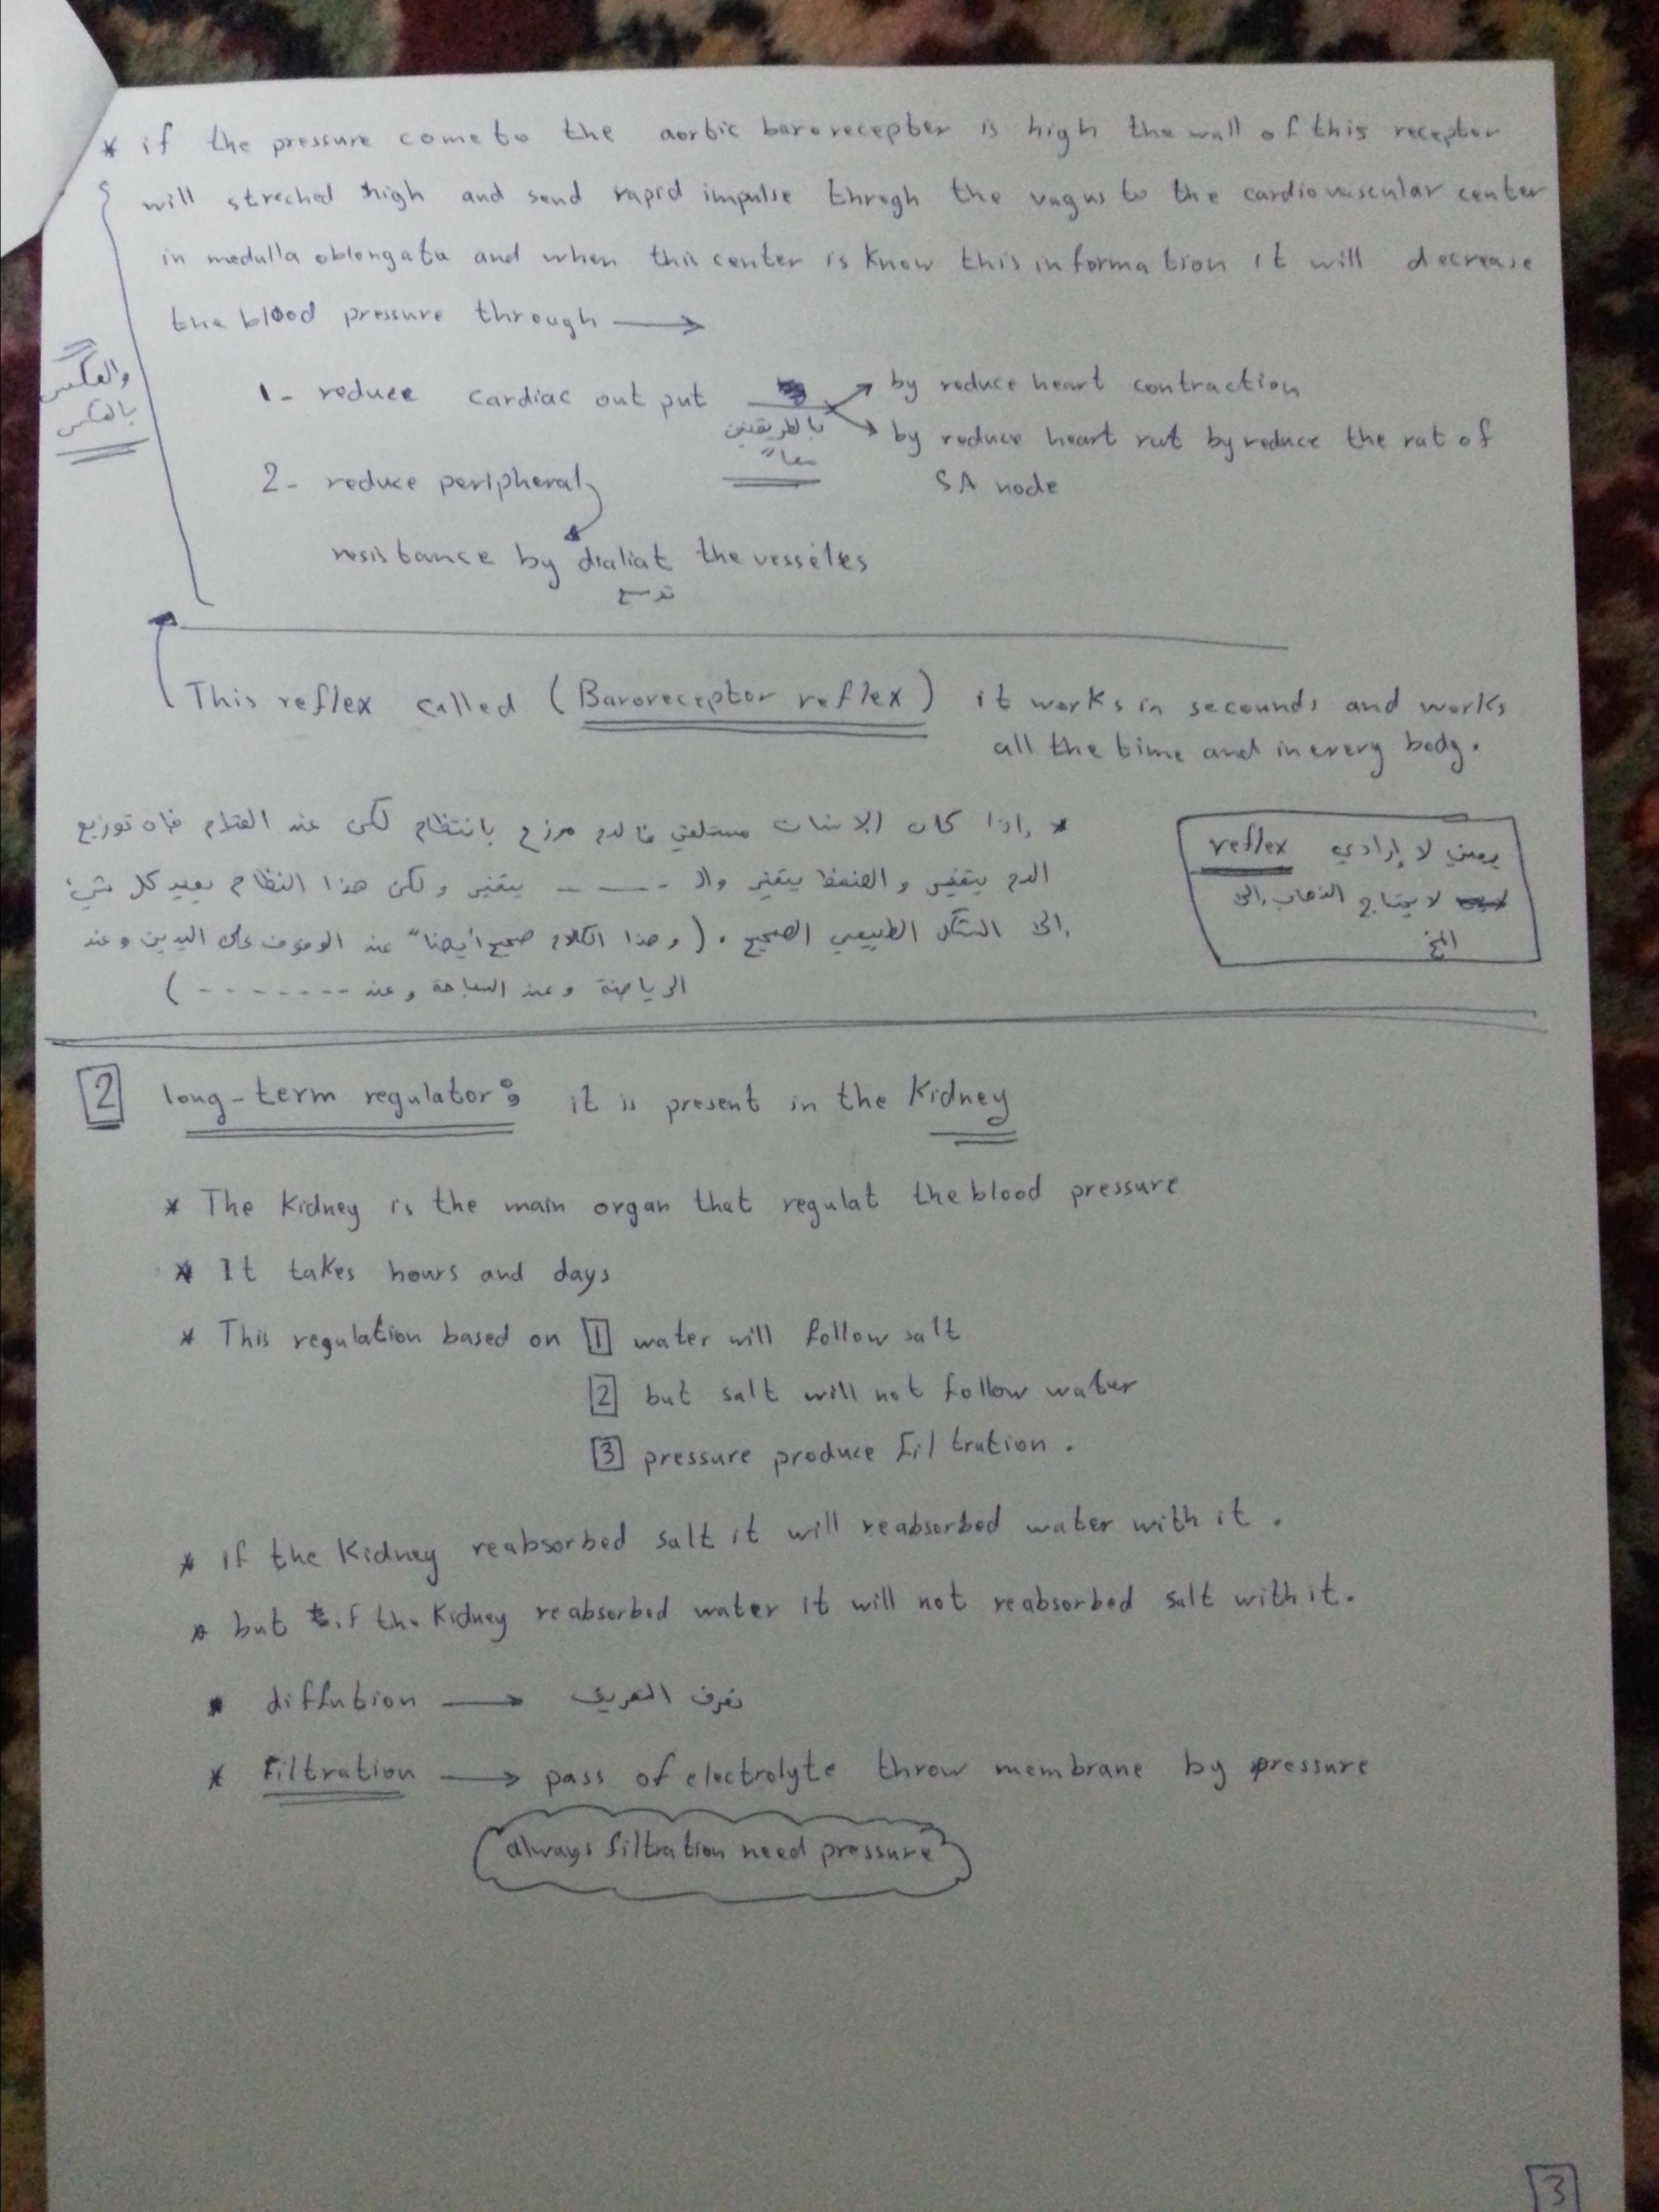 * if the pressure come to the aortic barorecepter is high the wall of this receptor
will streched high and send rapid impulse throgh the vagus to the cardiovascular center
in medulla oblongata and when this center is know this information it will decrease
the blood pressure through →
والعكس
بالعكس
1- reduce cardiac out put
بالطريقتين
معاً
by reduce heart contraction
by reduce heart rat by reduce the rat of
SA node
2- reduce peripheral
resistance by dialiat the vesseles
توسع
This reflex called (Baroreceptor reflex) it works in secounds and works
all the time and in every body.
* إذا كان الإنسان مستلقي فالدم موزع بانتظام لكن عند القيام فإن توزيع
الدم يتغير والضغط يتغير والـ ------ يتغير ولكن هذا النظام يعيد كل شيء
إلى الشكل الطبيعي الصحيح. (وهذا الكلام صحيح أيضاً عند الوقوف على اليدين وعند
الرياضة وعند السباحة وعند --------)
reflex يعني لا إرادي
لا يحتاج الذهاب إلى
المخ
2 long-term regulator: it is present in the Kidney
* The Kidney is the main organ that regulat the blood pressure
* It takes hours and days
* This regulation based on 1 water will follow salt
2 but salt will not follow water
3 pressure produce filtration.
* if the Kidney reabsorbed salt it will reabsorbed water with it.
* but if the Kidney reabsorbed water it will not reabsorbed salt with it.
* diffution → نعرف التعريف
* Filtration → pass of electrolyte throw membrane by pressure
always filtration need pressure
3